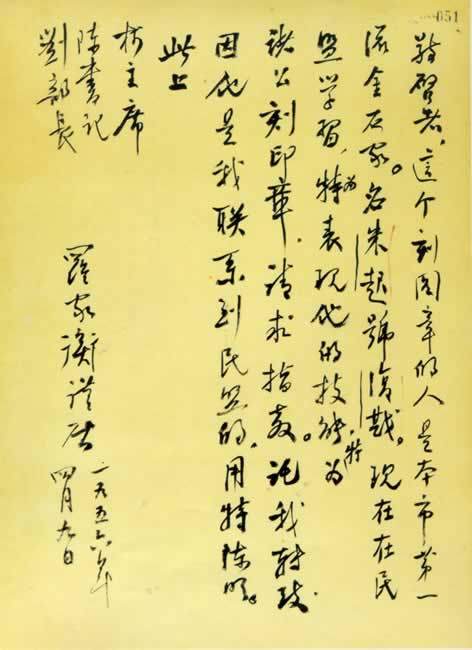 051
敬啓者，這个刻图章的人是本市第一
流金石家。名朱起號復戡。现在在民
盟学習，特为表现他的技能，特为
诸公刻印章，请求指教。託我转致
因他是我联系到民盟的，用特陈明。
此上
杨主席
陈書记
劉部長
羅家衡谨启
一九五六年
四月九日